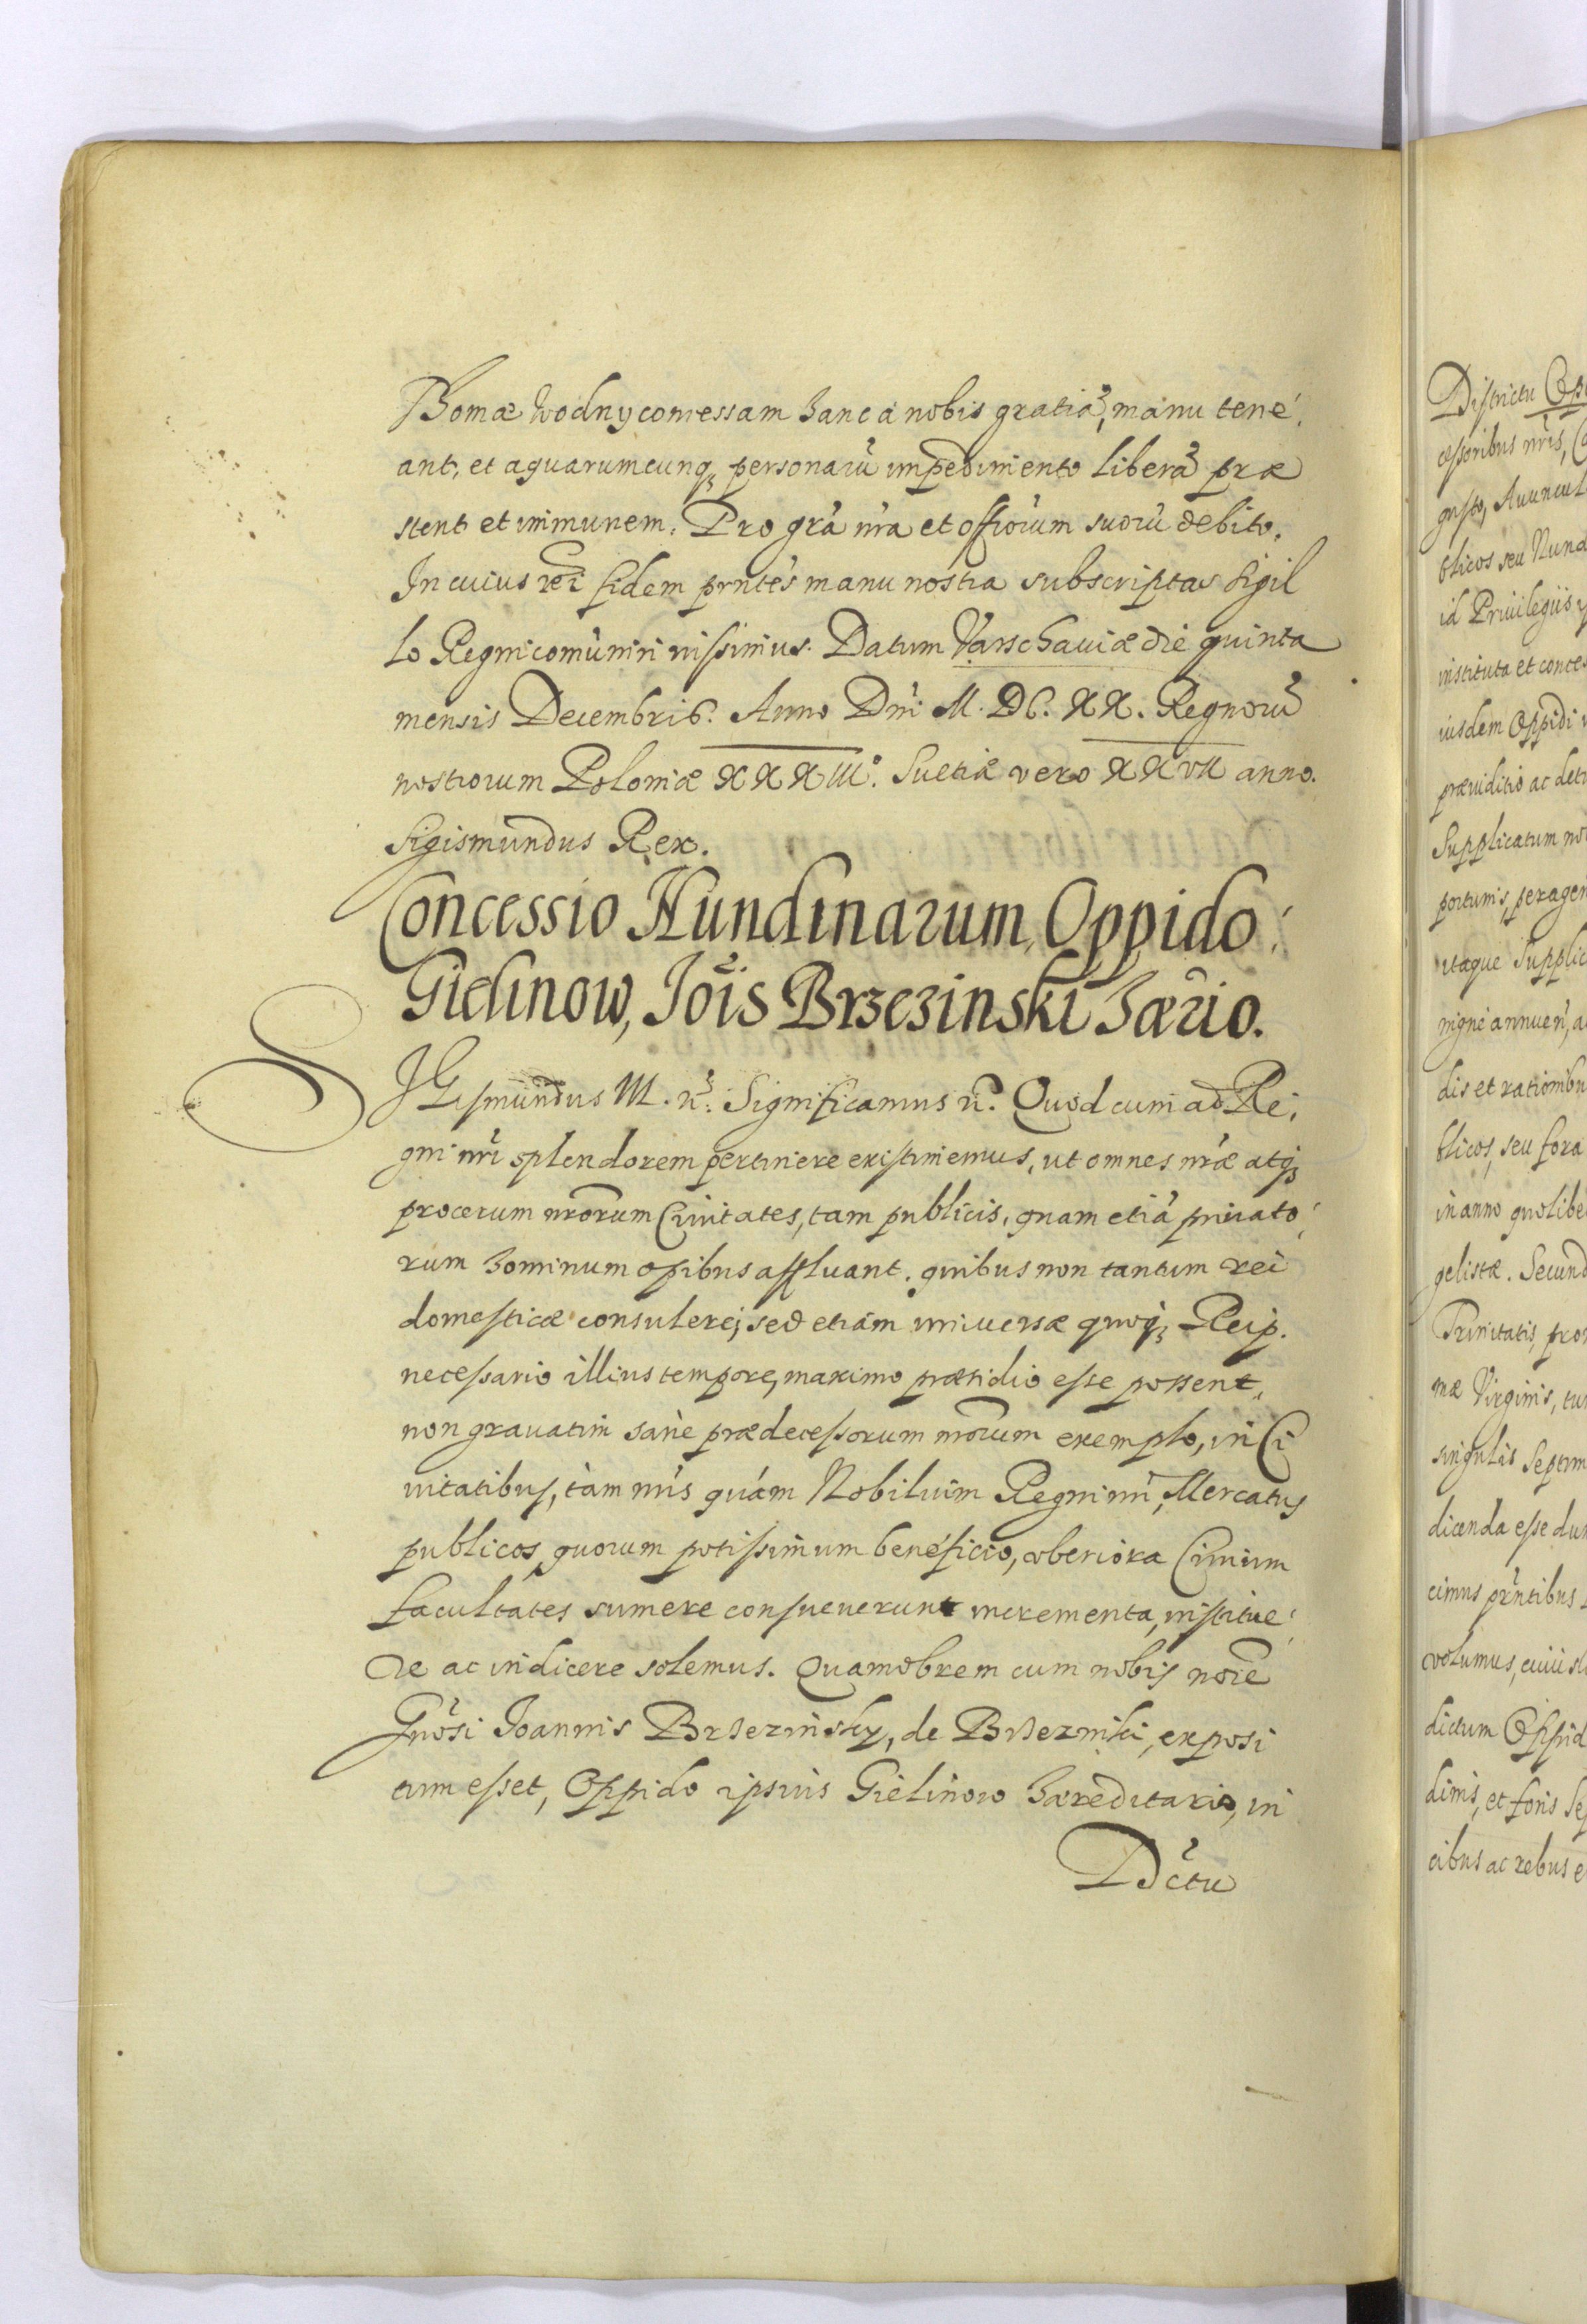 Thomæ Wodny concessam hanc à nobis gratiã, manu tene
ant, et aquarumcunq₃ personarũ impedimento liberã præ
stent et immunem. Pro grã nrã et offiorum suorũ debito.
In cuius rei fidem prntes manu nostra subscriptas Sigil
lo Regni comuniri iussimus. Datum Varschaviæ die quinta
mensis Decembris. Anno Dni M. DC. XX. Regnorũ
nostrorum Poloniæ XXXIII°. Suetiæ vero XXVII anno.
Sigismundus Rex.
Concessio Nundinarum Oppido
Gielinow, Jois Brzezinski hærio.
SIGismundus III. &c. Significamus &c. Quod cum ad Re
gni nri splendorem pertinere existimemus, ut omnes nræ atq₃
procerum nrorum Civitates, tam publicis, quam etiã privato
rum hominum opibus affluant. quibus non tantum rei
domesticæ consulere, sed etiam universæ quoq₃ Reip.
necessario illius tempore, maximo præsidio esse possent,
non gravatim sane prædecessorum nrorum exemplo, in Ci
vitatibus, tàm nris quám Nobilium Regni nri, Mercatus
publicos, quorum potissimum beneficio, uberiora Civium
facultates sumere consueverunt incrementa, institue
re ac indicere solemus. Quamobrem cum nobis noie
Gnosi Joannis Brzezinsky, de Brzezinki, exposi
tum esset, Oppido ipsius Gielinow hæreditario, in
Dctu
Districtu Opo
cessoribus nris, Ca
gusto, Avuncul
blicos seu Nund
id Privilegiis
instituta et conces
iusdem Oppidi
præiuditio ac detr
Supplicatum no
portunis, peragen
itaque Supplic
nigne annueri, a
dis et rationibu
blicos, seu fora
in anno quolibe
gelistæ. Secund
Trinitatis, pro
mæ Virginis, tu
singulis Septim
dicenda esse du
cimus prntibus
volumus, cuius
dictum Oppid
dinis, et foris Se
cibus ac rebus e